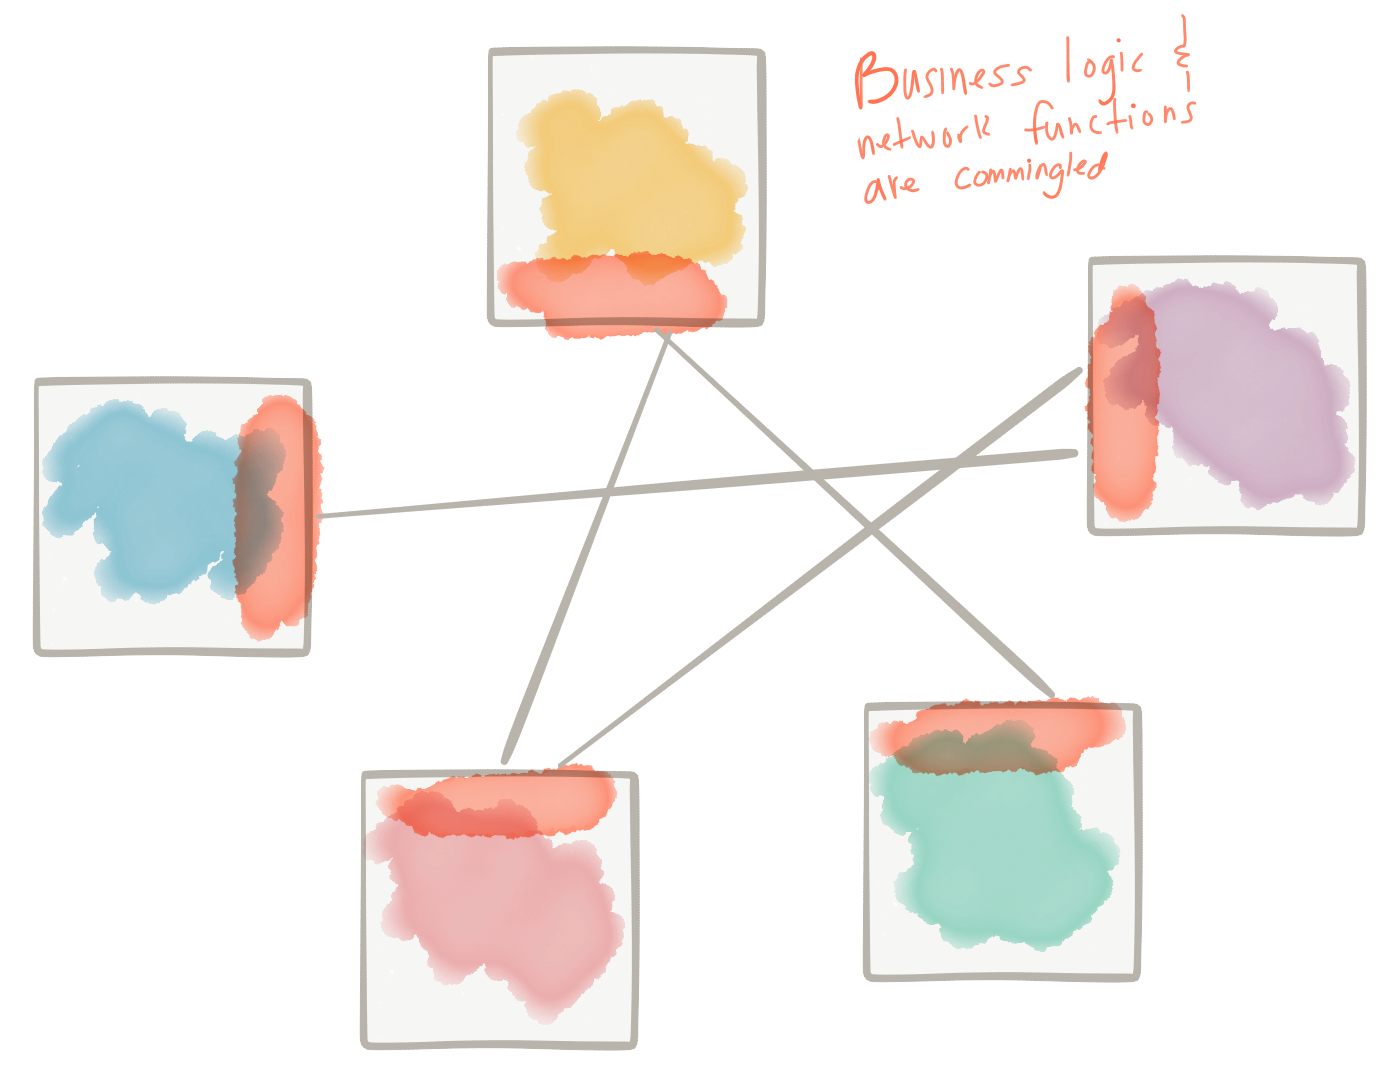 Business logic &
network functions
are commingled